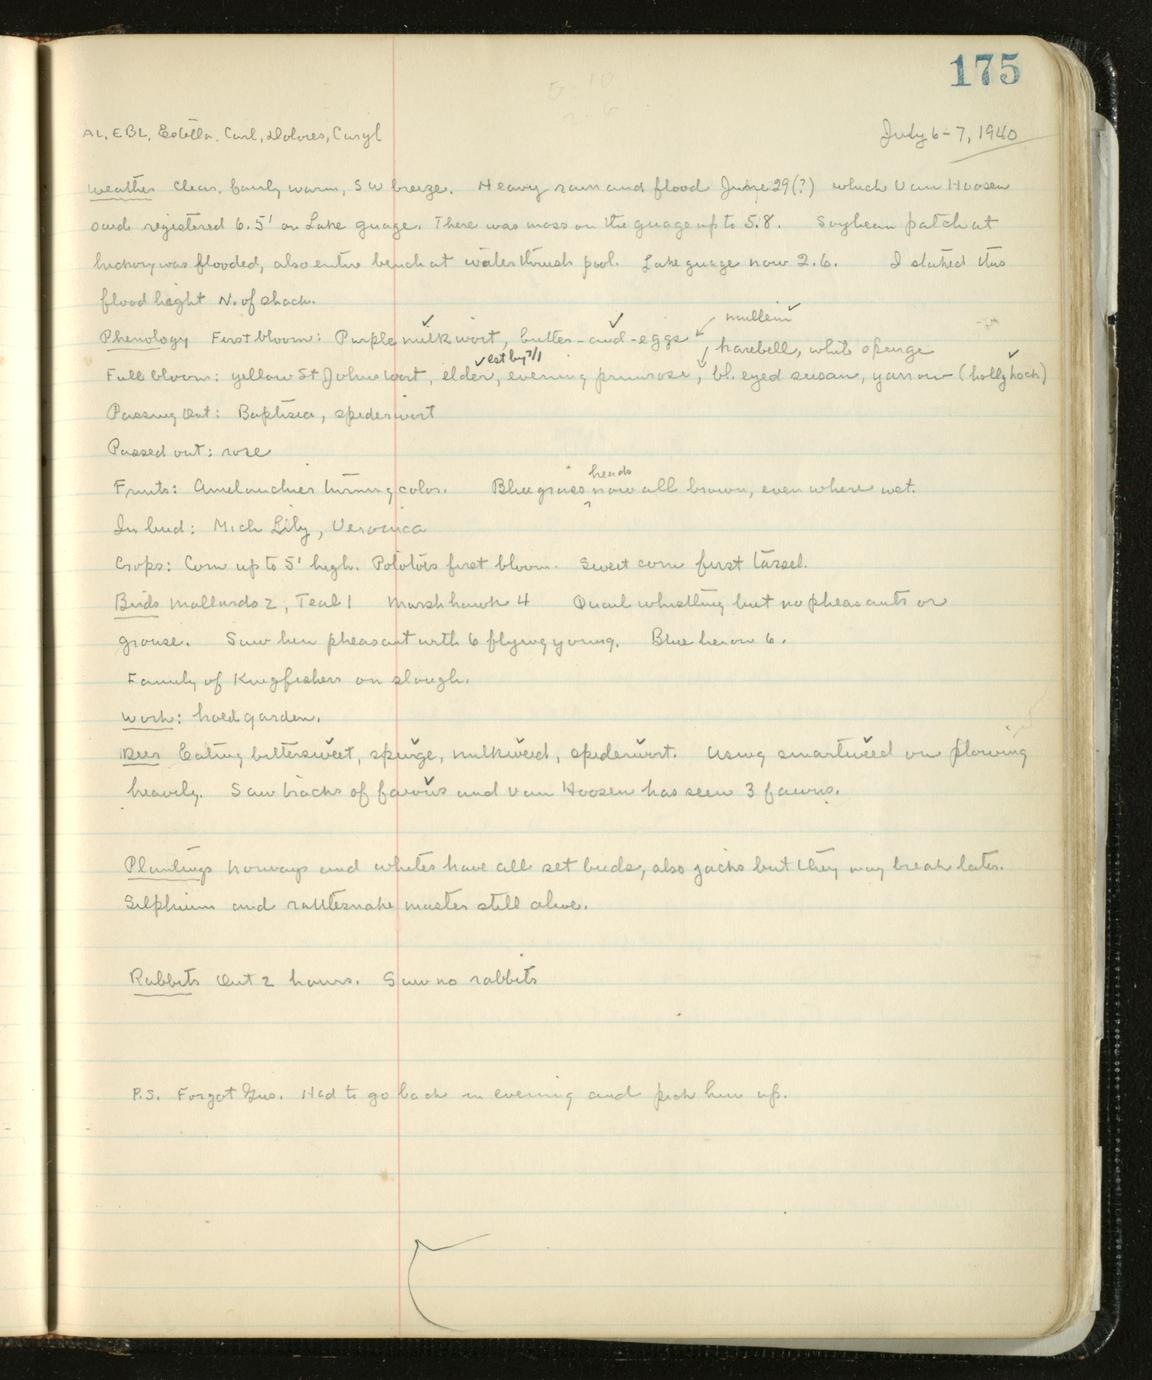 175
AL, EBL, Estella, Carl, Dolores, Caryl July 6-7, 1940
Weather Clear, fairly warm, SW breeze. Heavy rain and flood June 29(?) which Van Hoosen
said registered 6.5' on Lake guage. There was moss on the guage up to 5.8. Soybean patch at
hickory was flooded, also entire bench at waterthrush pool. Lake guage now 2.6. I staked this
flood height N. of shack.
mullein
Phenology First bloom: Purple milkwort, butter-and-eggs harebell, white spurge
est by 7/1
Full bloom: yellow St Johnswort, elder, evening primrose, bl. eyed susan, yarrow (hollyhock)
Passing Out: Baptisia, spiderwort
Passed out: rose
heads
Fruits: Amelanchier turning color. Bluegrass now all brown, even where wet.
In bud: Mich Lily, Veronica
Crops: Corn up to 5' high. Pototois first bloom. Sweet corn first tassel.
Birds Mallards 2, Teal 1 Marsh hawk 4 Quail whistling but no pheasants or
grouse. Saw hen pheasant with 6 flying young. Blue heron 6.
Family of Kingfishers on slough.
Work: hoed garden.
Deer Eating bittersweet, spurge, milkweed, spiderwort. Using smartweed on plowing
heavily. Saw tracks of fawns and Van Hoosen has seen 3 fawns.
Plantings Norways and whites have all set buds, also jacks but they may break later.
Silphium and rattlesnake master still alive.
Rabbits Out 2 hours. Saw no rabbits
P.S. Forgot Gus. Had to go back in evening and pick him up.